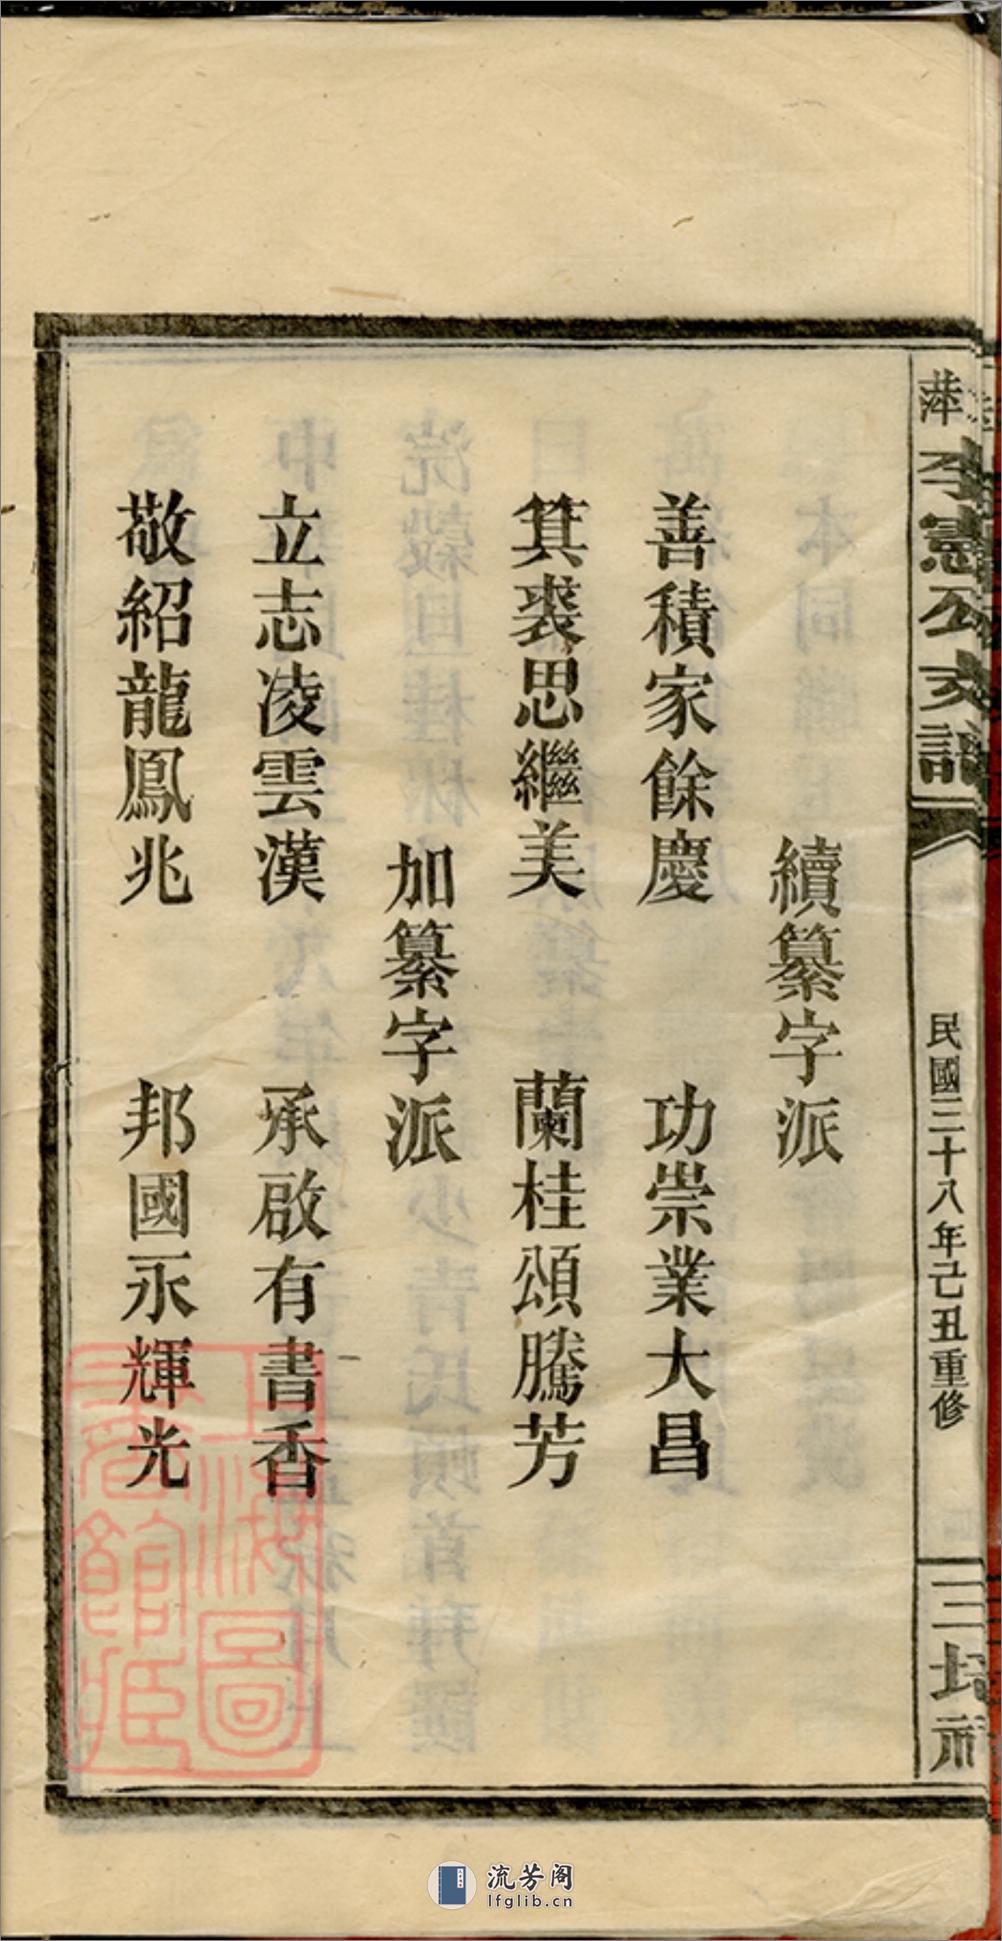 李憲公支譜
民國三十八年己丑重修
續纂字派
善積家餘慶 功崇業大昌
箕裘思繼美 蘭桂頌騰芳
加纂字派
立志凌雲漢 承啟有書香
敬紹龍鳳兆 邦國永輝光
上海圖書館藏
流芳阁
lfglib.cn